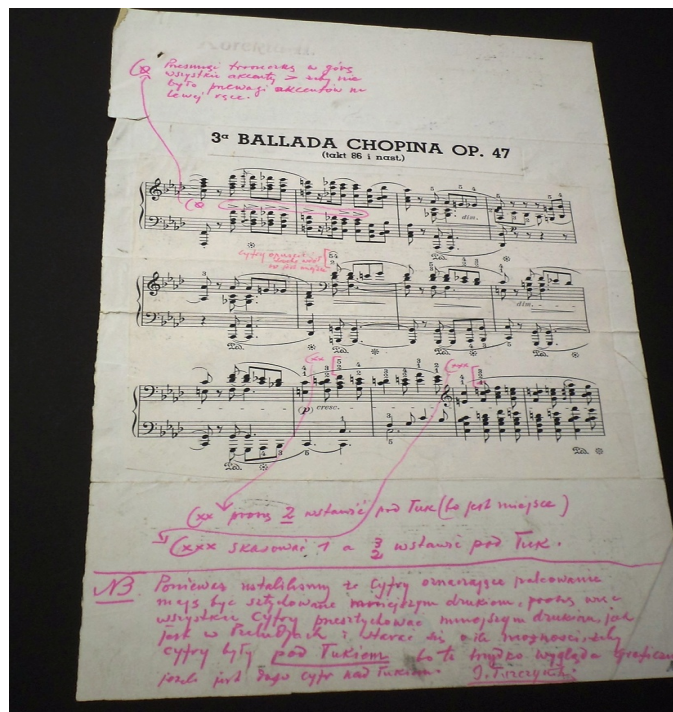 (x Przesunąć troszeczkę w górę
wszystkie akcenty > żeby nie
było przewagi akcentów na
lewej ręce.
3a BALLADA CHOPINA OP. 47
(takt 86 i nast.)
(x
dim.
cyfry
5 4 2
dim.
(xx
(xxx
(p) cresc.
(xx proszę 2 wstawić pod Łuk (to jest miejsce)
(xxx skasować 1 a 3 2 wstawić pod Łuk.
NB Ponieważ ustaliliśmy że cyfry oznaczające palcowanie
mają być sztychowane mniejszym drukiem, proszę więc
wszystkie cyfry przesztychować mniejszym drukiem, jak
jest w Preludjach i starać się o ile możności żeby
cyfry były pod Łukiem bo to brzydko wygląda graficznie
jeżeli jest dużo cyfr nad Łukiem.